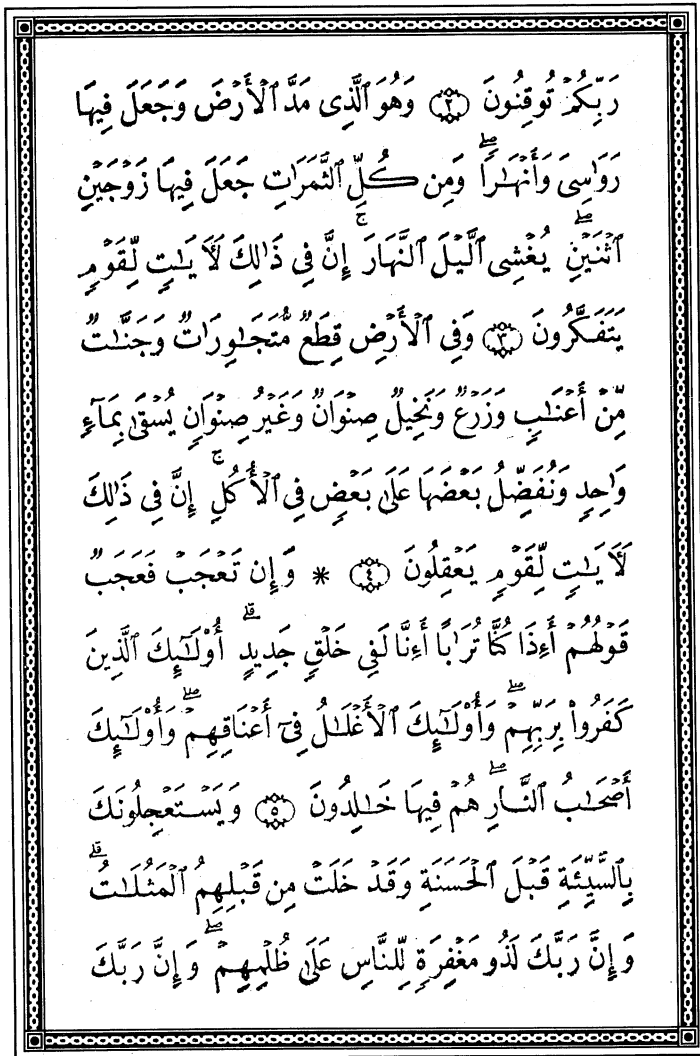 رَبِّكُمْ تُوقِنُونَ ۝٢ وَهُوَ ٱلَّذِى مَدَّ ٱلْأَرْضَ وَجَعَلَ فِيهَا
رَوَٰسِىَ وَأَنْهَٰرًا ۖ وَمِن كُلِّ ٱلثَّمَرَٰتِ جَعَلَ فِيهَا زَوْجَيْنِ
ٱثْنَيْنِ ۖ يُغْشِى ٱلَّيْلَ ٱلنَّهَارَ ۚ إِنَّ فِى ذَٰلِكَ لَأٓيَٰتٍ لِّقَوْمٍ
يَتَفَكَّرُونَ ۝٣ وَفِى ٱلْأَرْضِ قِطَعٌ مُّتَجَٰوِرَٰتٌ وَجَنَّٰتٌ
مِّنْ أَعْنَٰبٍ وَزَرْعٌ وَنَخِيلٌ صِنْوَانٌ وَغَيْرُ صِنْوَانٍ يُسْقَىٰ بِمَآءٍ
وَٰحِدٍ وَنُفَضِّلُ بَعْضَهَا عَلَىٰ بَعْضٍ فِى ٱلْأُكُلِ ۚ إِنَّ فِى ذَٰلِكَ
لَأٓيَٰتٍ لِّقَوْمٍ يَعْقِلُونَ ۝٤ * وَإِن تَعْجَبْ فَعَجَبٌ
قَوْلُهُمْ أَءِذَا كُنَّا تُرَٰبًا أَءِنَّا لَفِى خَلْقٍ جَدِيدٍ ۗ أُو۟لَٰٓئِكَ ٱلَّذِينَ
كَفَرُوا۟ بِرَبِّهِمْ ۖ وَأُو۟لَٰٓئِكَ ٱلْأَغْلَٰلُ فِىٓ أَعْنَاقِهِمْ ۖ وَأُو۟لَٰٓئِكَ
أَصْحَٰبُ ٱلنَّارِ ۖ هُمْ فِيهَا خَٰلِدُونَ ۝٥ وَيَسْتَعْجِلُونَكَ
بِٱلسَّيِّئَةِ قَبْلَ ٱلْحَسَنَةِ وَقَدْ خَلَتْ مِن قَبْلِهِمُ ٱلْمَثُلَٰتُ ۗ
وَإِنَّ رَبَّكَ لَذُو مَغْفِرَةٍ لِّلنَّاسِ عَلَىٰ ظُلْمِهِمْ ۖ وَإِنَّ رَبَّكَ